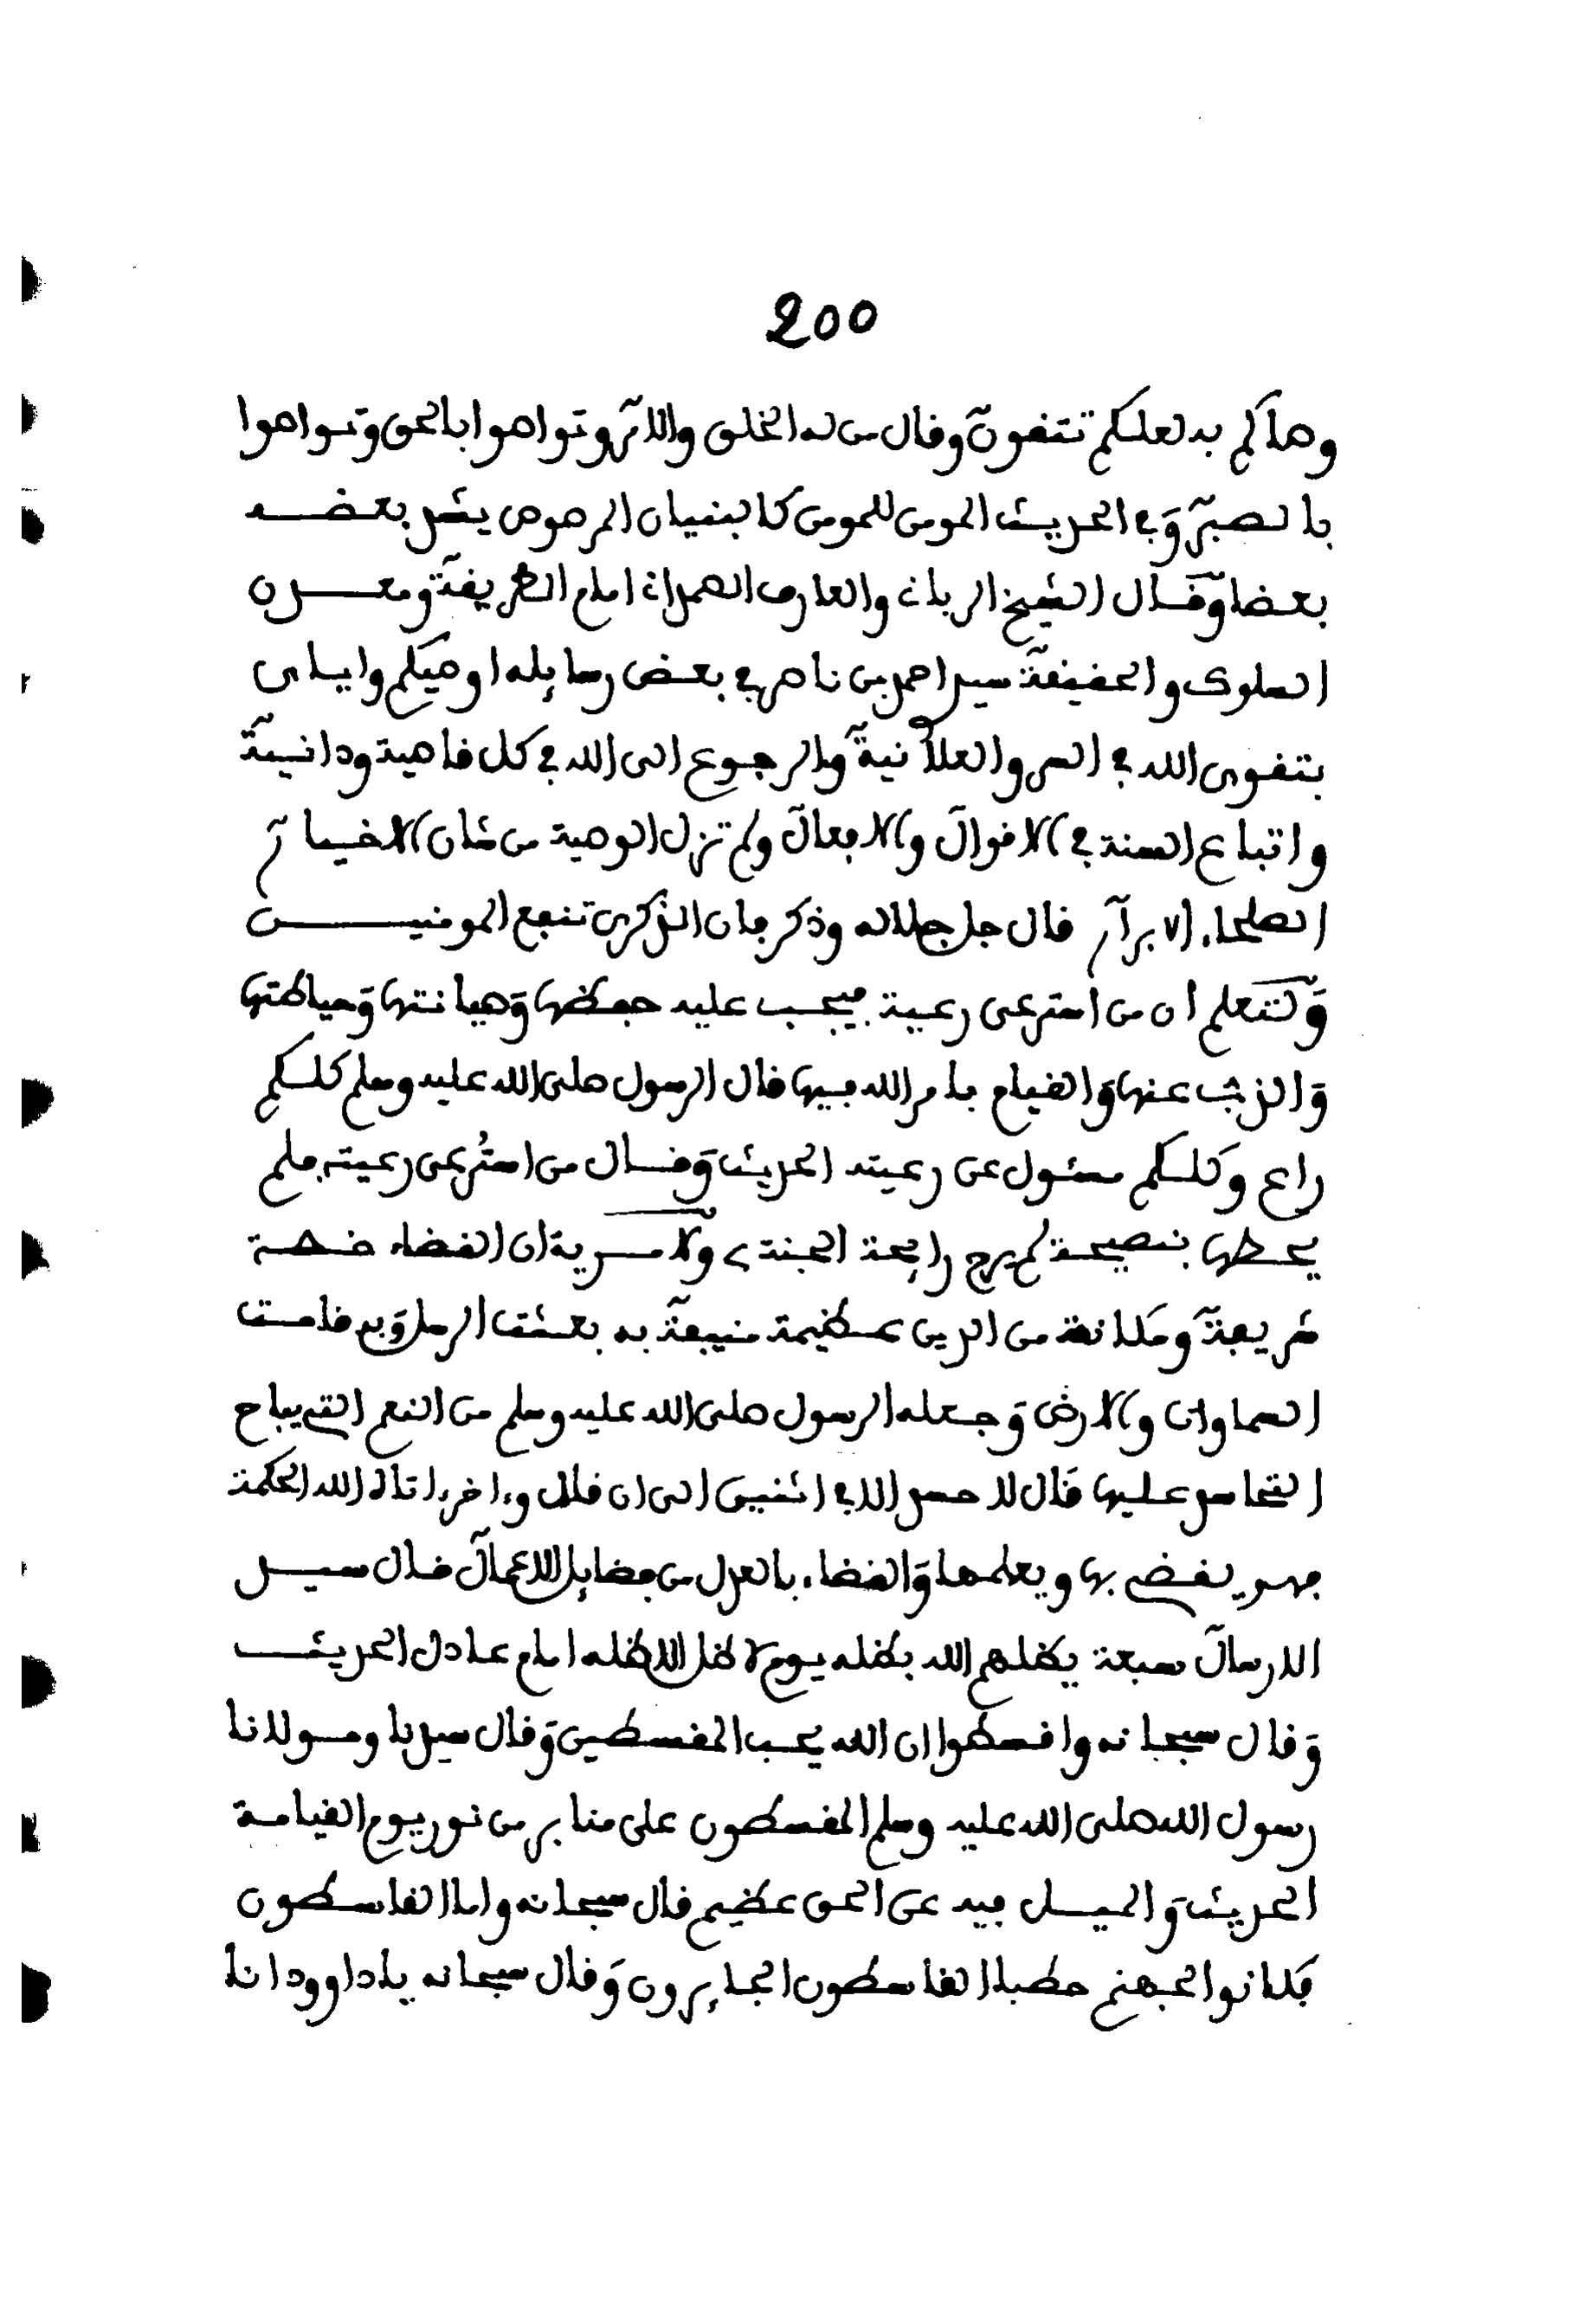 200
وصاكم به لعلكم تتقون وقال من له الخلق والامر وتواصوا بالحق وتواصوا
بالصبر وفي الحديث المومن للمومن كالبنيان المرصوص يشد بعضه
بعضا وقال الشيخ الرباني والعارف الصمداني امام الطريقة ومعدن
السلوك والحقيقة سيد احمد بن ناصر في بعض رسايله اوصيكم واياي
بتقوى الله في السر والعلانية والرجوع الى الله في كل قاصية ودانية
واتباع السنة في الاقوال والافعال ولم تزل الوصية من شان الاخيار
الصلحاء الابرار قال جل جلاله وذكر فان الذكرى تنفع المومنيــن
ولتعلم ان من استرعى رعية فيجب عليه حفظها وصيانتها وحياطتها
والذب عنها والقيام بامر الله فيها قال الرسول صلى الله عليه وسلم كلكم
راع وكلكم مسئول عن رعيته الحديث وقال من استرعى رعيته فلم
يحطها بنصيحة لم يرح رايحة الجنة ولا مرية ان القضاء خطة
شريفة ومكانة من الدين عظيمة منيفة به بعثت الرسل وبه قامت
السماوات والارض وجعله الرسول صلى الله عليه وسلم من النعم التي يباح
التحاسد عليها قال لا حسد الا في اثنين الى ان قال وءاخر ءاتاه الله الحكمة
فهو يقضي بها ويعلمها والقضاء بالعدل من فضايل الاعمال قال سيد
الارسال سبعة يظلهم الله بظله يوم لا ظل الا ظله امام عادل الحديث
وقال سبحانه واقسطوا ان الله يحب المقسطين وقال سيدنا ومولانا
رسول الله صلى الله عليه وسلم المقسطون على منابر من نور يوم القيامة
الحديث والميل فيه عن الحق عظيم قال سبحانه واما القاسطون
فكانوا لجهنم حطبا القاسطون الجايرون وقال سبحانه يا داوود انا